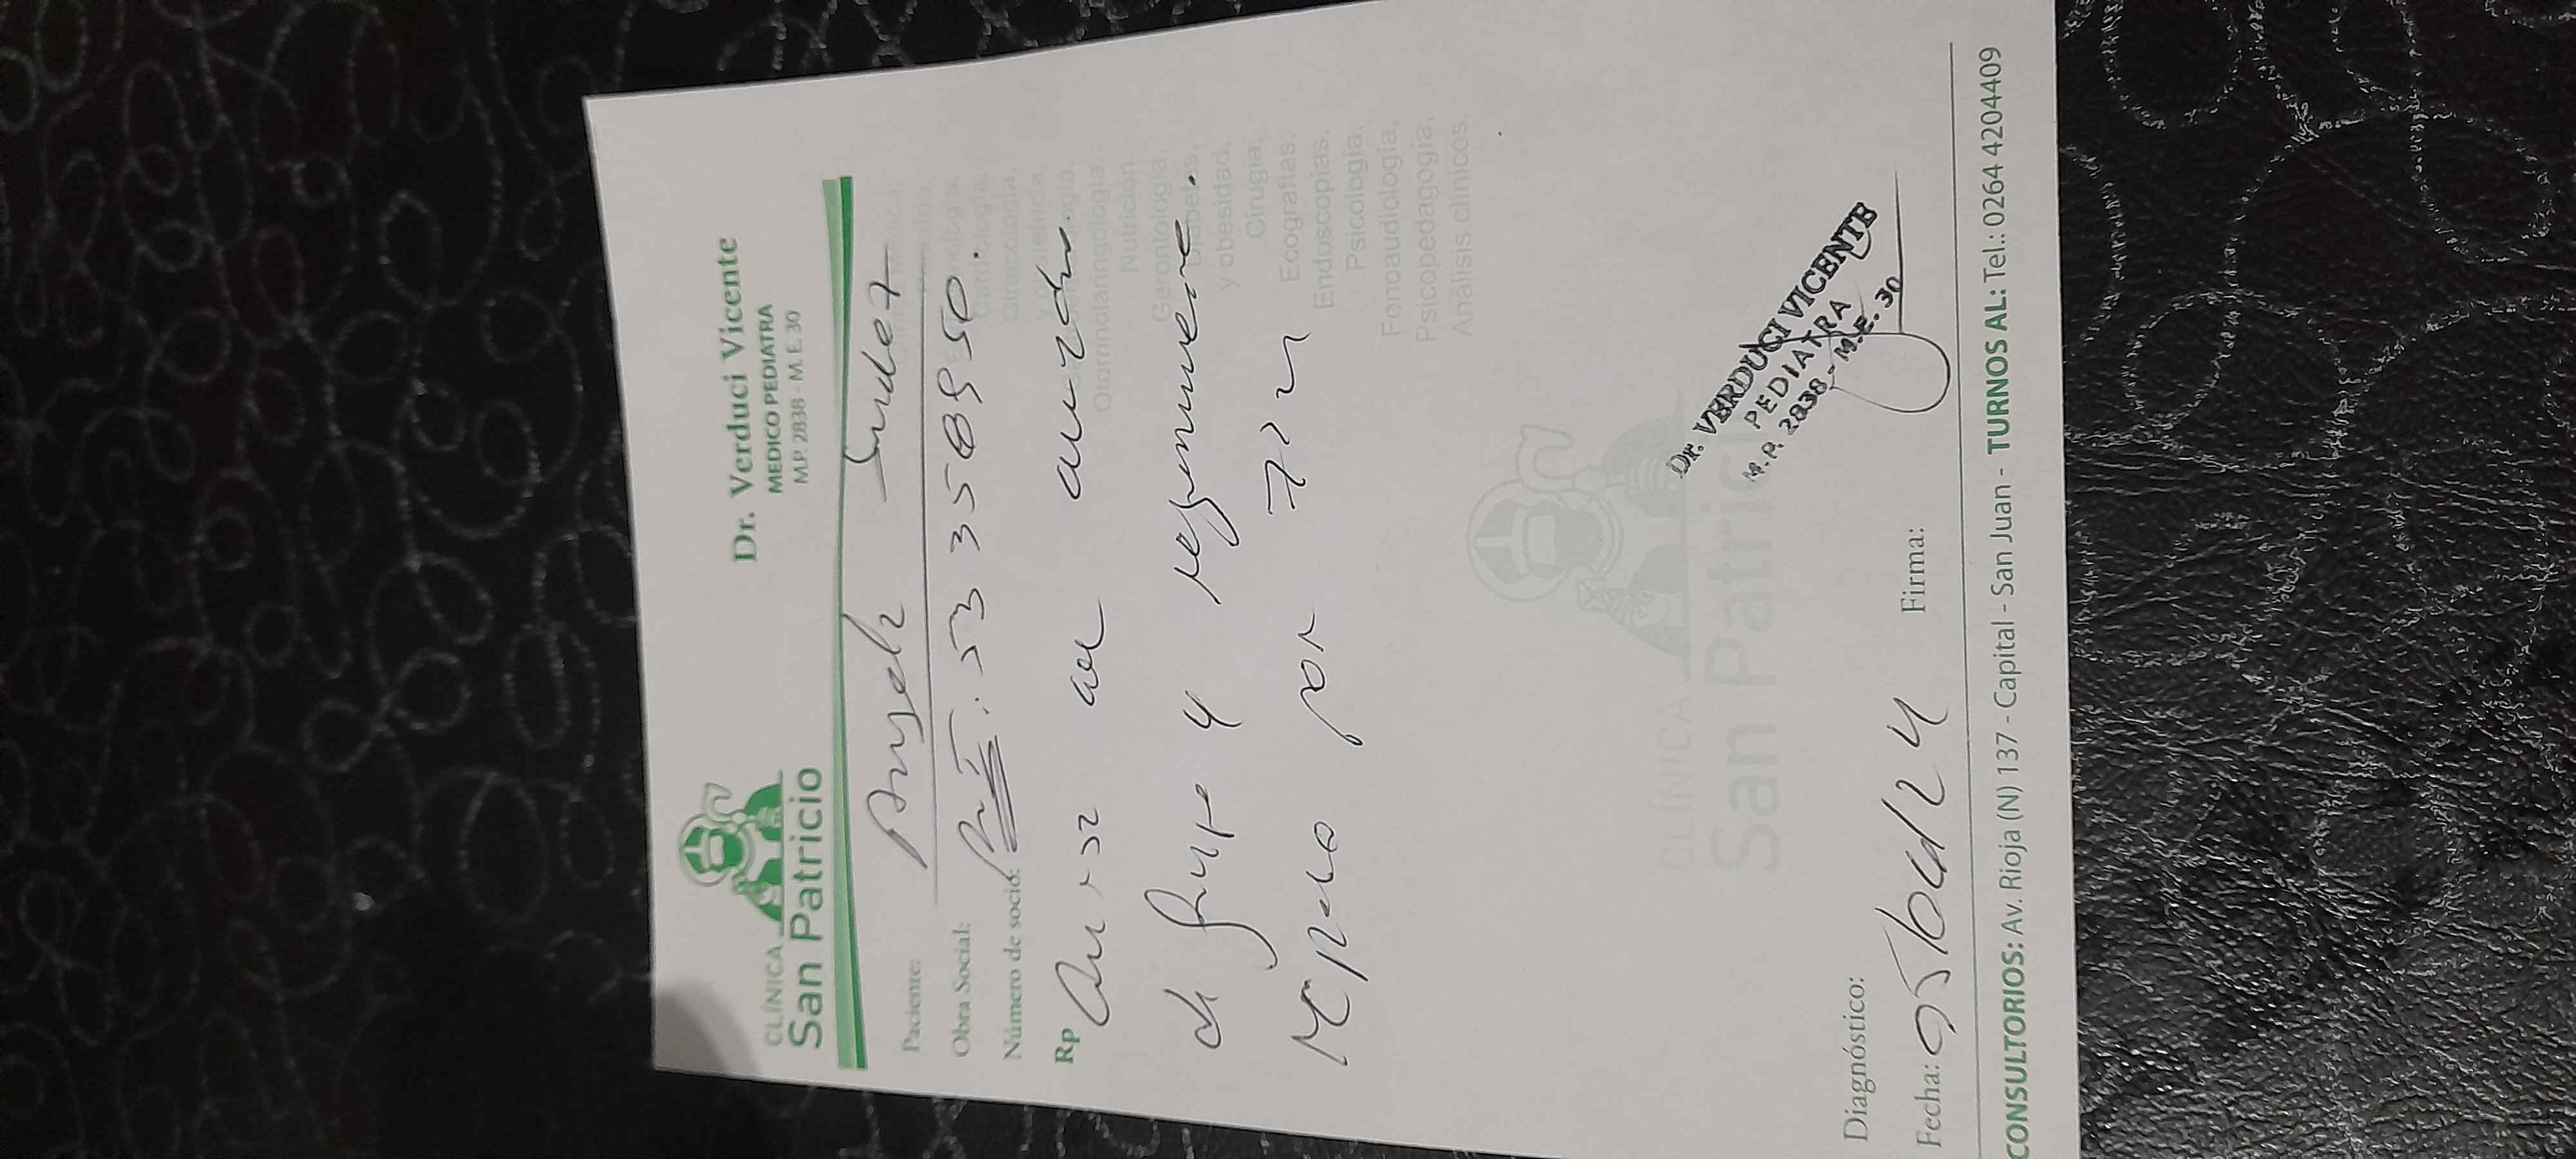 CLÍNICA
San Patricio
Dr. Verduci Vicente
MEDICO PEDIATRA
M.P. 2838 - M.E 30
Paciente:
Obra Social:
Número de socio: 53 356950.
Rp Cursa con cuadro
de gripe y requiere
reposo por 72 h
Ginecología,
Otorrinolaringología,
Nutrición
Gerontología,
Diabetes,
y obesidad,
Cirugía,
Ecografías,
Endoscopias,
Psicología,
Fonoaudiología,
Psicopedagogía,
Análisis clínicos.
CLÍNICA
San Patricio
Dr. VERDUCI VICENTE
PEDIATRA
M.P. 2838 - M.E. 30
Diagnóstico:
Fecha: Firma:
CONSULTORIOS: Av. Rioja (N) 137 - Capital - San Juan - TURNOS AL: Tel.: 0264 4204409